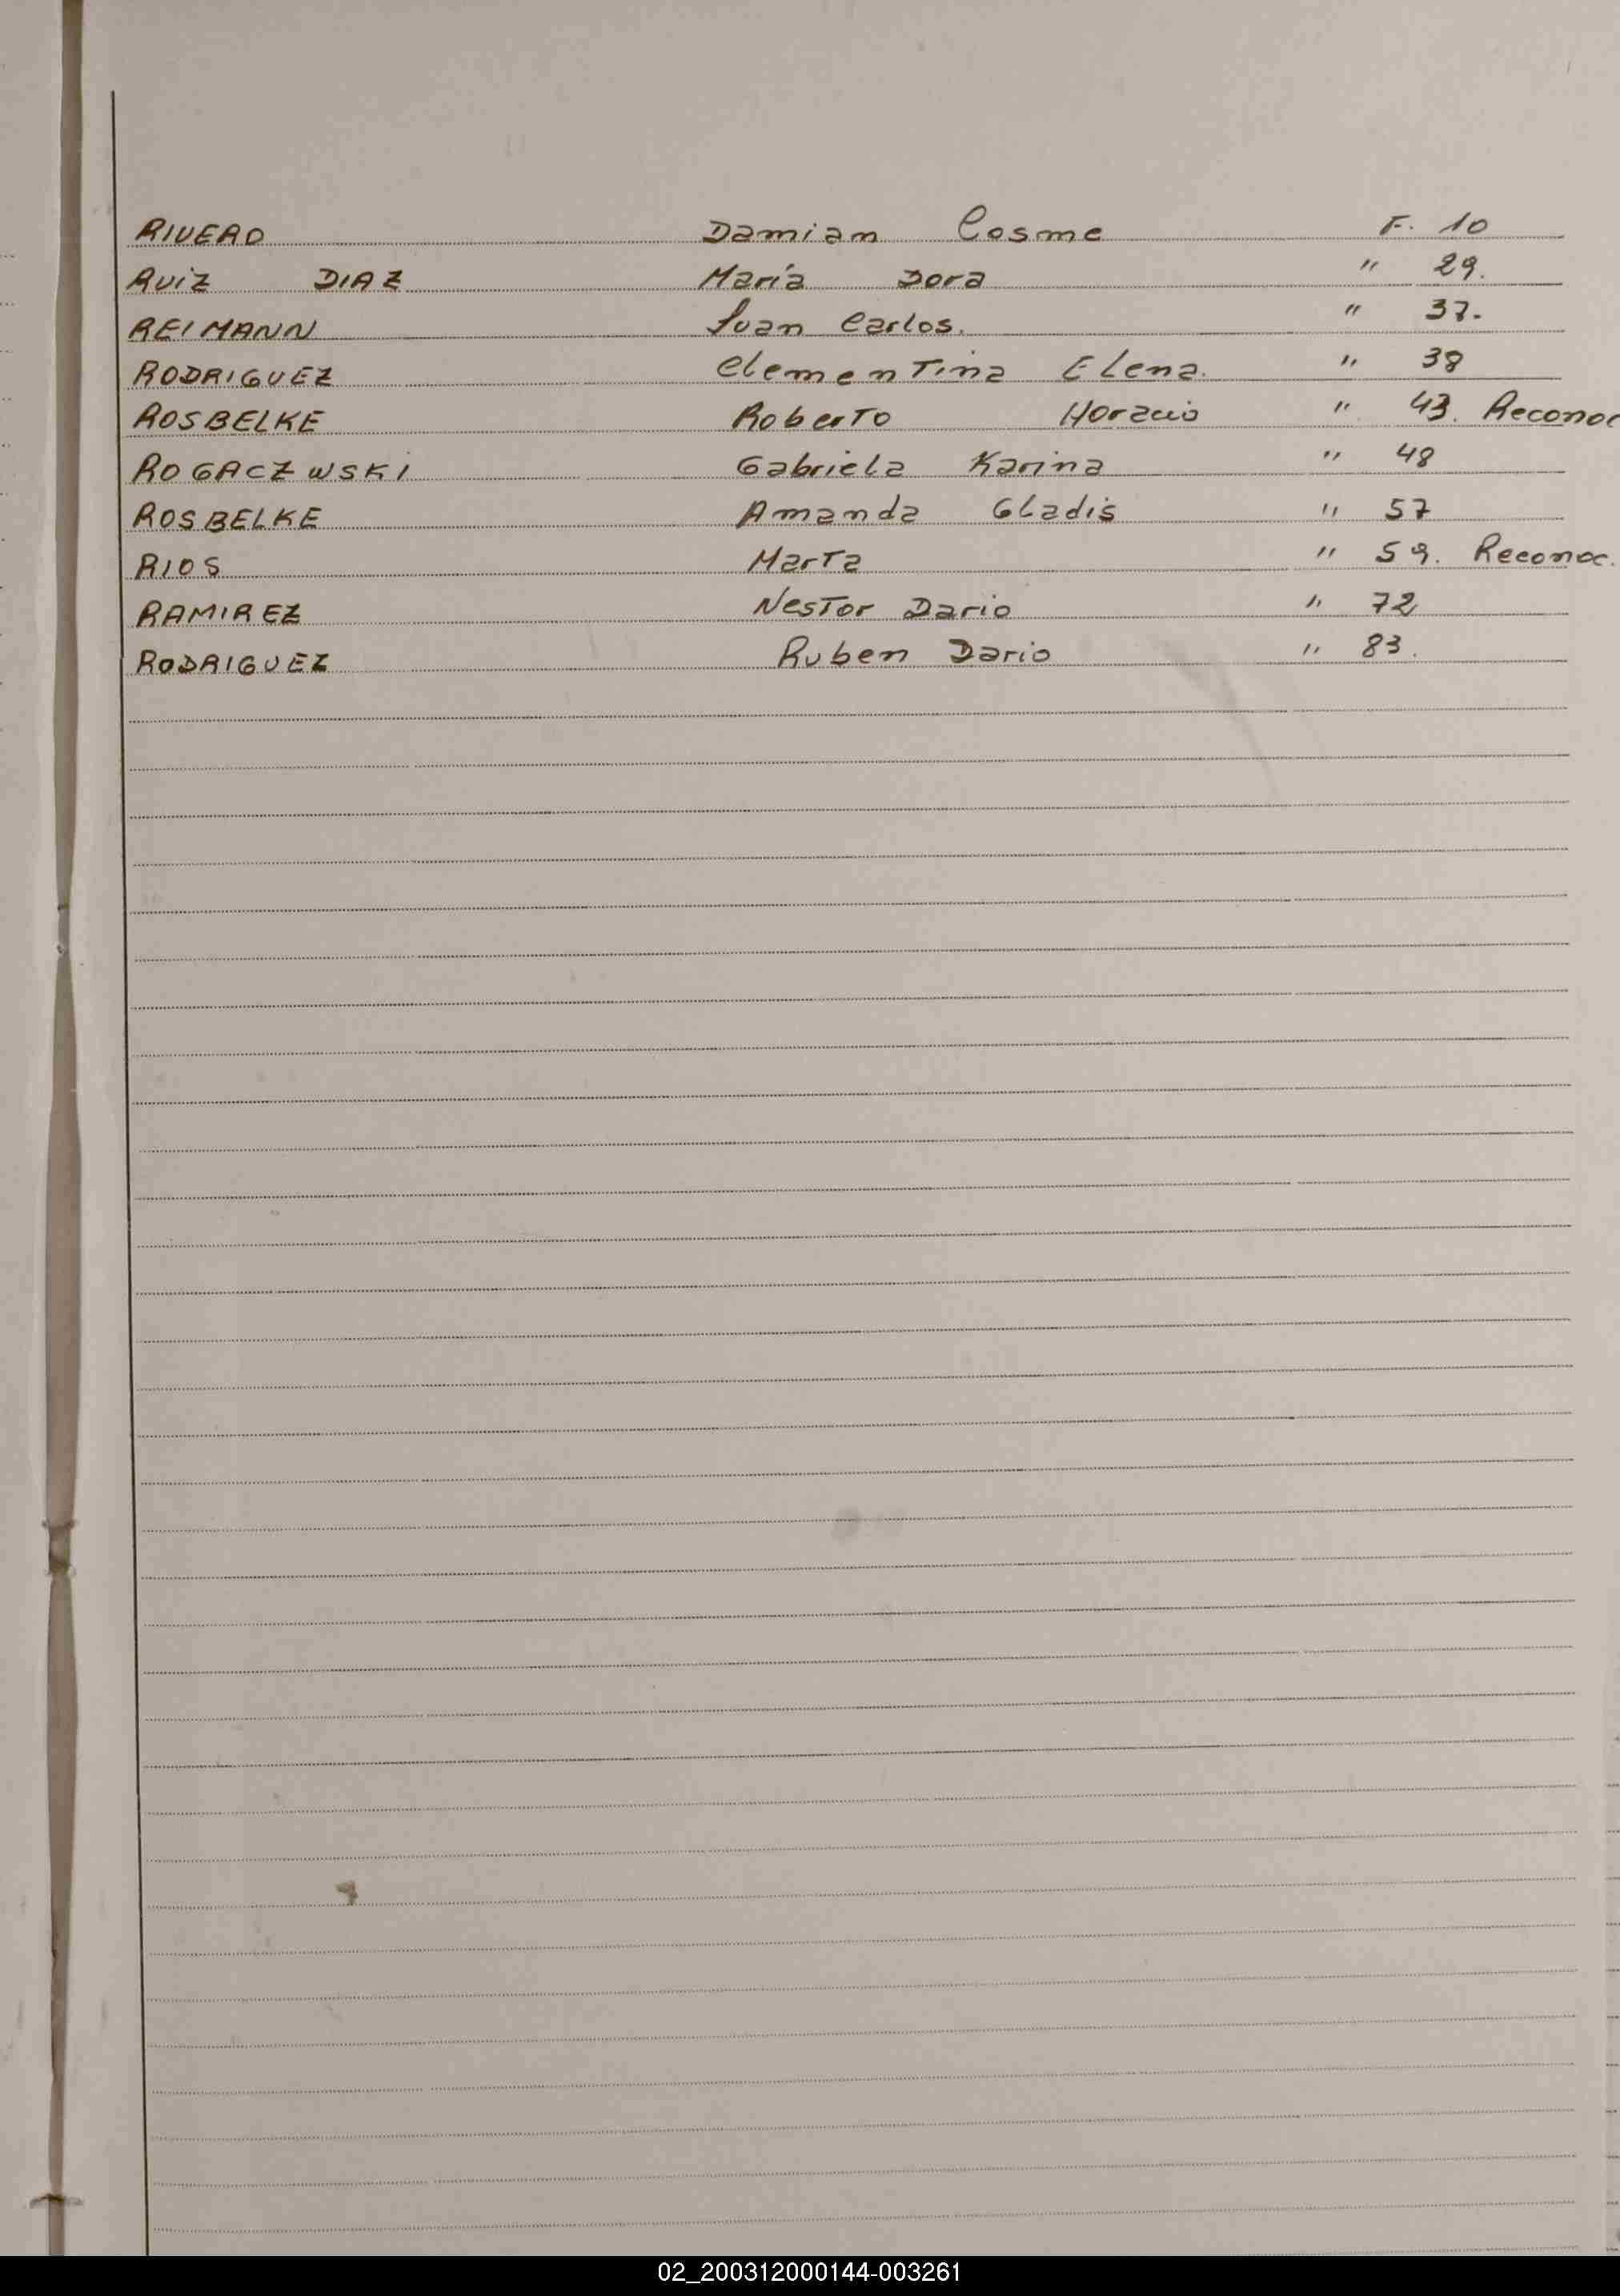 RIVERO Damian Cosme F. 10
RUIZ DIAZ María Dora " 29.
REIMANN Juan Carlos. " 37.
RODRIGUEZ Clementina Elena. " 38
ROSBELKE Roberto Horacio " 43. Reconoc
ROGACZWSKI Gabriela Karina " 48
ROSBELKE Amanda Gladis " 57
RIOS Marta " 59. Reconoc.
RAMIREZ Nestor Dario " 72
RODRIGUEZ Ruben Dario " 83.
02_200312000144-003261